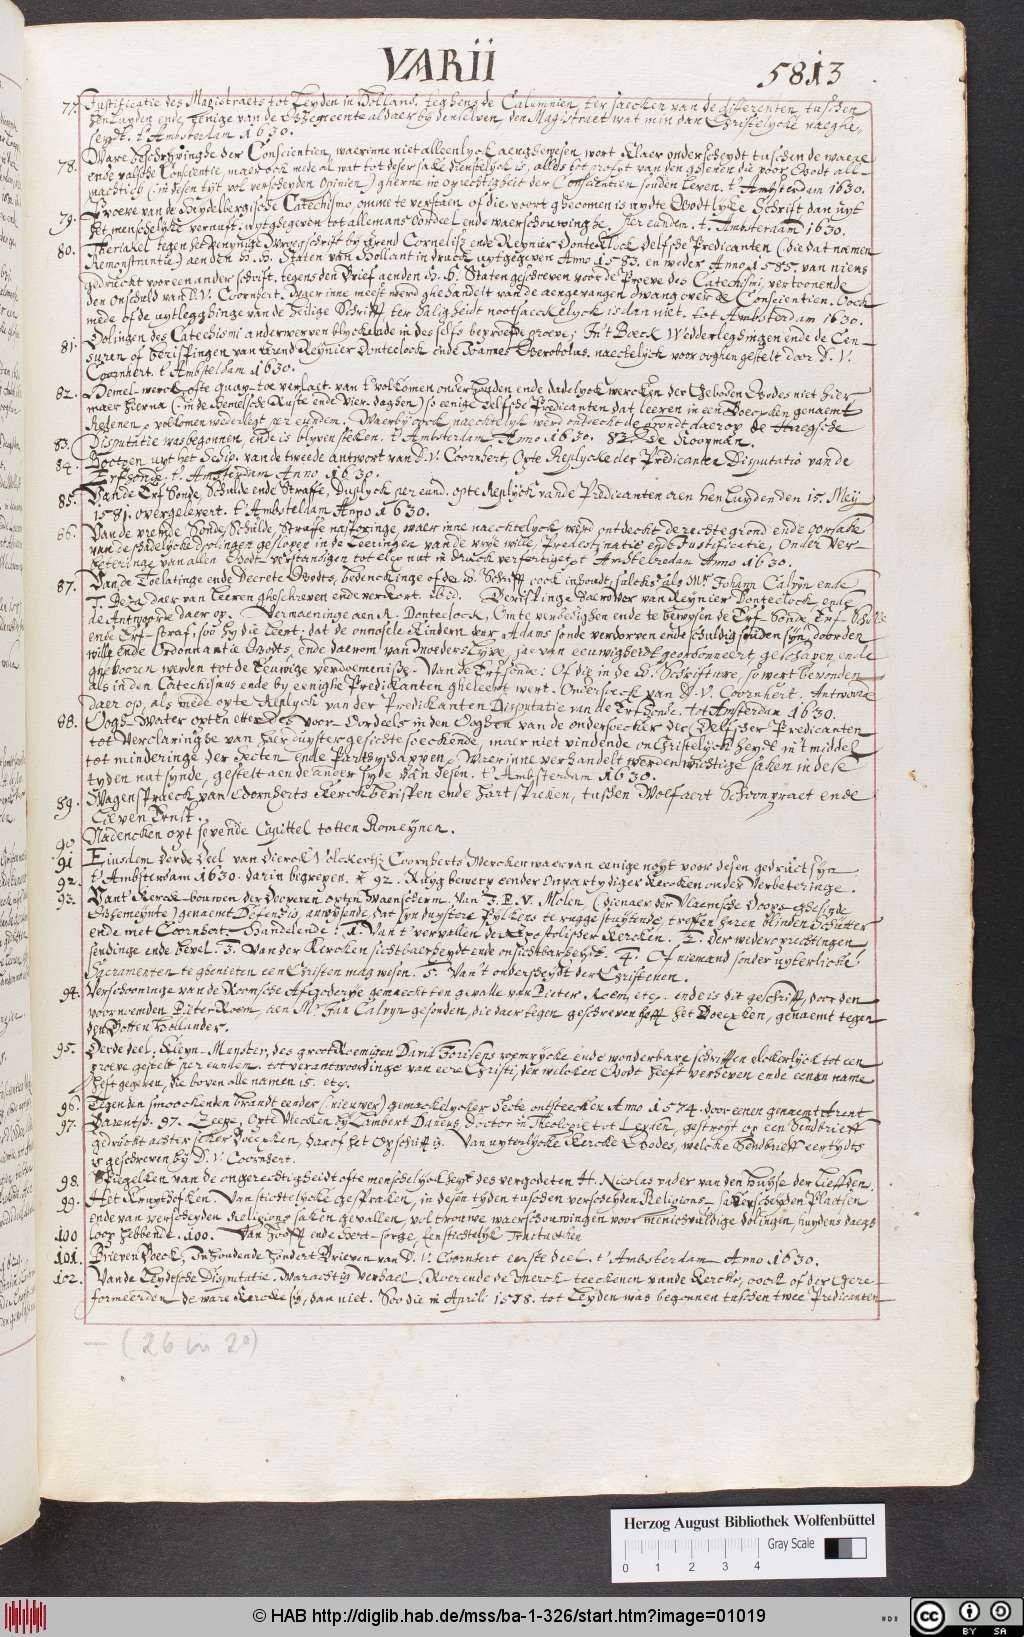 VARII
5813
77. Justificatie des Magistraets tot Leyden in Hollant, teghens de Calumnien, ter saecken van de differenten tusschen
hen luyden ende eenige van de Ghegeente aldaer by denselven, den Magistraet wat min dan Christelycke naeghe-
seydt. t'Ambsterdam 1630.
78. Ware beschryvinghe der Conscientien, waerinne niet alleenlyck aenghewesen wort klaer onderscheydt tusschen de waere
ende valsche Conscientie, maer ock mede al wat tot deser sake dienstelyck is, alles tot profyt van den ghenen die voor Godt all-
machtich (in desen tyt vol verscheyden Opinien) gherne in oprechtigheit der Conscientien souden leven. t'Ambsterdam 1630.
79. Proeve van de Heydelbergische Catechismo, omme te verstaen of die voort ghecomen is uyt de Godtlycke Schrift dan uyt
het menschelycke vernuft, uytghegeven tot allemans oordeel ende waerschouwinghe per eundem. t. Ambsterdam 1630.
80. Theriakel tegen het venynige Wroegschrift by Arend Cornelisz ende Reynier Donteclock Delfsche Predicanten (die dat namen
Remonstrantie) aen den H. H. Staten van Hollant in druck uytgegeven Anno 1583. en weder Anno 1585. van niens
gedruckt voor een ander schrift, tegens den Brief aenden H. H. Staten geschreven voor de Proeve des Catechismi, vertoonende
den Onschuld van D. V. Coornhert. Waer inne meest werd ghehandelt van de aengevangen dwang over de Conscientien. Oock
mede of de uytlegghinge van de heilige Schrifft ter saligheidt nootsaeckelyck is dan niet. tot Ambsterdam 1630.
81. Dolingen des Catechismi anderwerven blyckende in desselfs beproefde proeve; In't Boeck Wedderlegsingen ende de Cen-
suran of berispingen van Arend Reynier Donteclock ende Joannes Oberobolus, naeckelyck voor ooghen gestelt door D. V.
Coornhert. t'Ambsteldam 1630.
82. Hemel-werck ofte Quay-toe verlaet. van t'volkomen onderhouden ende dadelyck wercken der Geboden Godes niet hier
maer hierna (in de hemelsche Ruste ende Vier-daghen) so eenige Delfsche Predicanten dat leeren in een Boecxken genaemt
Redenen, volkomen wederlegt per eundem. Waerby oock naecktelyck werd ontdeckt de grondt daer op de Haegsche
83. Disputatie was begonnen, ende is blyven steken. t'Ambsterdam Anno 1630. 82. De Koopman.
84. Bootgen uyt het Schip. van de tweede antwoort van D. V. Coornhert, Opte Replycke der Predicanten Disputatio van de
Erfsonde. t'Ambsterdam Anno 1630.
85. Van de Erf sonde, Schulde ende Straffe, Duplyck per eund. opte Replyck van de Predicanten aen hen luyden den 15. Mey
1581. overgelevert. t'Ambsteldam Anno 1630.
86. Van de vremde Sonde, Schulde, Straffe nasporinge waer inne naecktelyck werd ontdeckt de rechte grond ende oorsake
van de schadelycke Doolingen geslopen in de Leeringen van de vrye wille, Predestinatie ende Justificatie, Onder ver-
beteringe van allen Godt-verstandigen tot elcx nut in druck verfertiget. t'Amstelredam Anno 1630.
87. Van de Toelatinge ende Decrete Godts, bedenckinge of de H. Schrifft oock inhoudt sulcks als Mr. Johann Calvyn ende
T. Beza daer van leeren gheschreven ende verkort. ibid. Berispinge daer over van Reynier Donteclock, ende
de Antwoorde daer op. Vermaeninge aen R. Donteclock, Om te verdedighen ende te bewysen de Erf-Sonde, Erf-Schulde
ende Erf-straf, soo hy die leert: dat de onnosele kindern deur Adams sonde verdorven ende schuldig souden syn, door den
wille ende Ordonnantie Godts, ende daerom van moeders lyve, jae van eeuwigheydt geordonneert, geschapen, ende
gheboren werden tot de Eeuwige verdoemenisse. Van de Erfsonde: Of die in de H. Schrifture, so wert bevonden
als in den Catechismus ende by eenighe Predikanten gheleert wert. Ondersoeck van D. V. Coornhert. Antwoord
daer op, als mede opte Replyck van der Predikanten Disputatie van de Erfsonde. tot Amsterdam 1630.
88. Oogh-Water opten etter des voor-Oordeels in den Ooghen van de ondersoecker der Delfscher Predicanten
tot Verclaringhe van haer duyster gesichte soeckende, maer niet vindende on Christelyckheydt in't middel
tot minderinge der Secten ende Partyschappen. Waerinne verhandelt werden wichtige saken in dese
tyden nut synde, gestelt aen de ander syde van desen. t'Ambsterdam 1630.
89. Wagenspraeck van Coornherts Kerck berispen ende hartspreken, tusschen Wolfaert Schoonpraet ende
Lieven Ernst.
90. Nadencken opt sevende Capittel totten Romeynen.
91. Eiusdem Derde Deel van Dierck Volckertsz. Coornherts Wercken waer van eenige noyt voor desen gedruct syn
92. t'Ambsterdam 1630. darin begrepen. * 92. Ruyg bewerp eender Onpartydiger Kercken onder verbeteringe.
93. Van't Kercke-bouwen der Dooperen opten Waenscherm. Van J. P. V. Molen (dienaer der Vlaemsche Doops-ghesinde
Ghemeynte) genaemt Defensio, anwysende, dat syn duystere Pylkens te rugge stuytende, treffen haren blinden Schutter
ende met Coornhert. Handelende: 1. Van t'vervallen der Apostolischer Kercken. 2. Der wederoprechtingen
sendinge ende bevel. 3. Van der Kercken sichtbaerheydt ende onsichtbaerheydt. 4. Of niemand sonder uyterlicke
Sacramenten te ghenieten een Christen mag wesen. 5. Van't onderscheydt der Christenen.
94. Verschooninge van de Roomsche Afgoderye gemaeckt ten gevalle van Pieter Room, etc. ende is dit geschrifft, door den
voornoemden Pieter Room, aen Mr. Jan Calvyn gesonden, die daer tegen geschreven heft het Boecxken, genaemt tegen
den Botten Hollander.
95. Derde deel: Kleyn-Munster, des groot Roemigen David Jorisens roemrycke ende wonderbare schriften elckerlyck tot een
proeve gestelt per eundem. tot verantwoordinge van eere Christi, den welcken Godt heeft verheven ende eenen name
heft gegeven, die boven alle namen is. etc.
96. Tegen den smoockenden brandt eender (nieuwer) gemackelycker Secte ontsteecken Anno 1574. door eenen genaemt Arent
97. Barentsz. 97. Zeepe, Opte Vlecken by Lambert Daneus, Doctor in Theologie tot Leyden, gestroyt op een Sendbrieff
gedruckt achter seker Boecxken, daer of het Opschrift is. Van uyterlycke Kercke Godes, welcke Sendbrieff eertydts
is geschreven by D. V. Coornhert.
98. Spiegelken van de ongerechtigheidt ofte menschelyckheyt des vergodeten H. Nicolas vader van den Huyse der Lieffden.
99. Het Kruythofken. Van stichtelycke gespraken, in desen tyden tusschen verscheyden Religions-saken verscheyden Plaetsen
ende van verscheyden Religions saken gevallen, vol trouwe waerschouwingen voor menichvuldige dolingen, huydens daegs
100 loop hebbende. 100. Van Hooft ende Hert-sorge, een stichtelyck Tractaethen.
101. Brieven-Boeck, Inhoudende hondert Brieven van D. V. Coornhert eerste deel. t'Ambsterdam Anno 1630.
102. Van de Leydtsche Disputatie. Warachtig verhael, Roerende de Merck-teeckenen van de Kercke, oock of der Gere-
formeerden de ware Kercke sy, dan niet. Soo die in Aprili 1578. tot Leyden was begonnen tusschen twee Predicanten
Herzog August Bibliothek Wolfenbüttel
Gray Scale
0 1 2 3 4
© HAB http://diglib.hab.de/mss/ba-1-326/start.htm?image=01019
CC BY SA